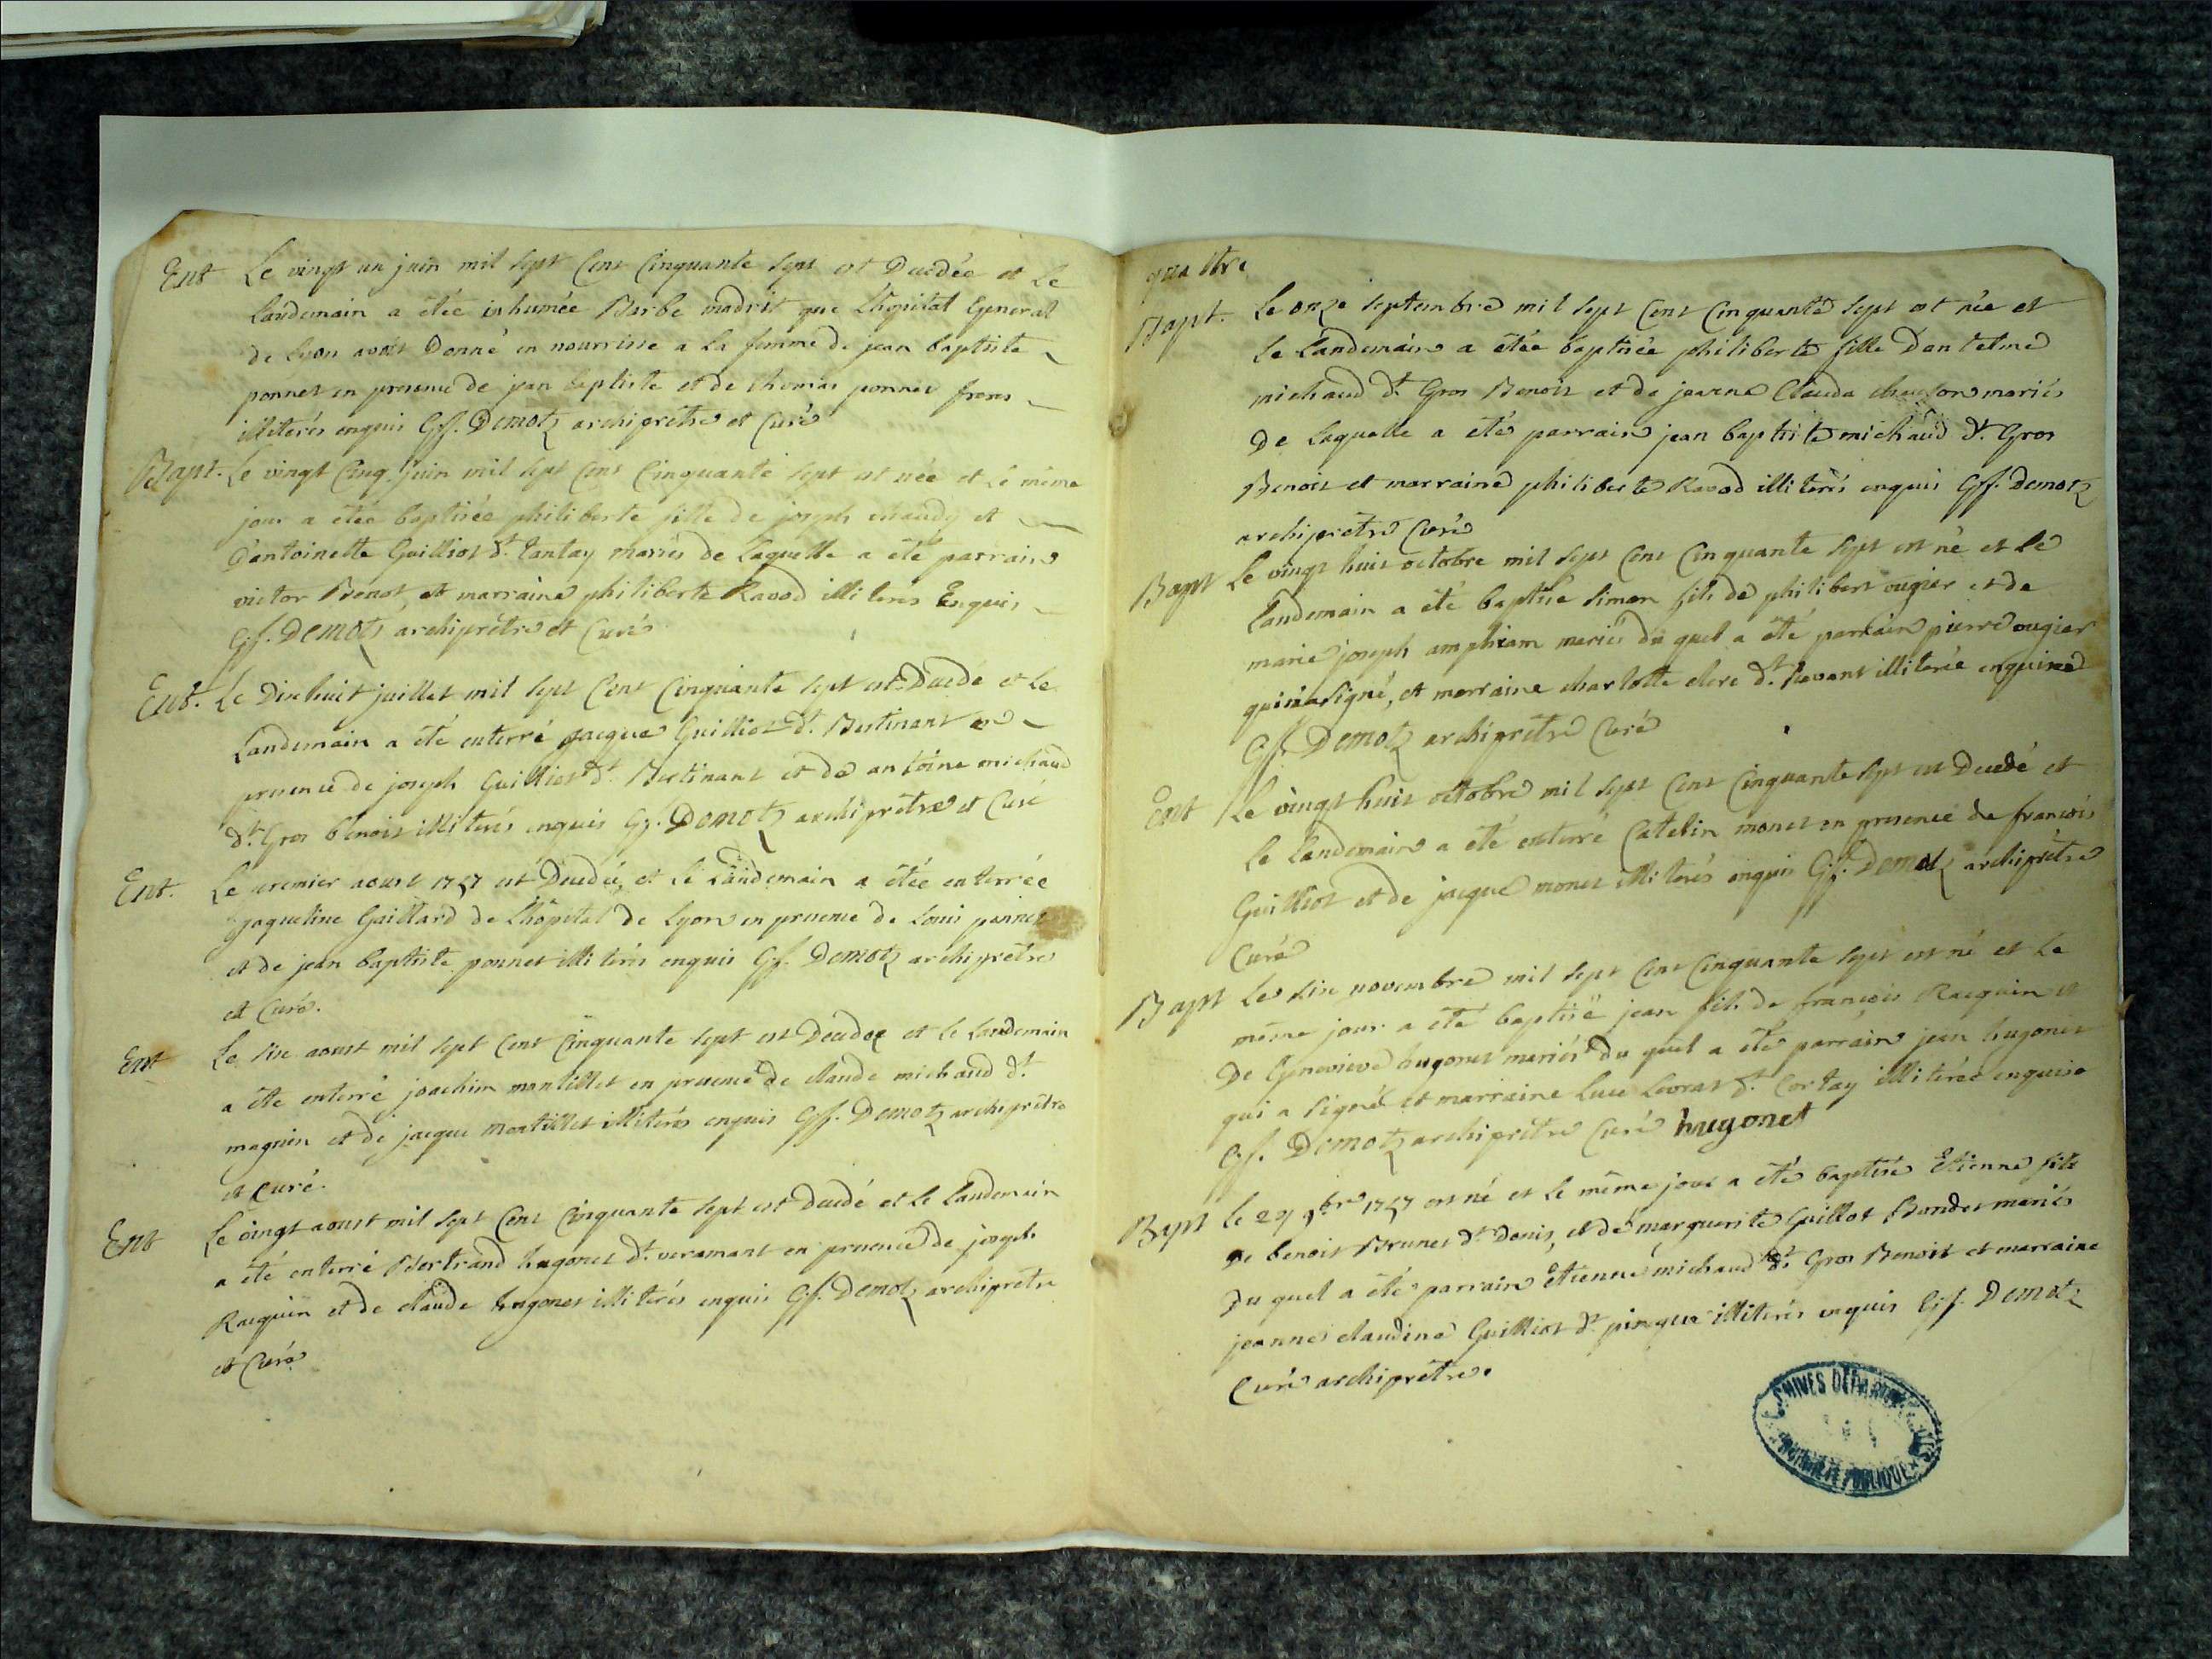 Ent Le vingt un juin mil sept Cent Cinquante sept est Decedée et Le
Landemain a étée inhumée Barbe madrit que L'hopital General
de Lyon avoit Donné en nourrisse a La femme de jean baptiste
ponnet en presence de jean baptiste et de thomas ponnet freres
illiterés enquis Gſ. Demotz archiprêtre et Curé
Bapt. Le vingt Cinq juin mil sept Cent Cinquante sept est née et Le même
jour a étée baptisée philiberte fille de joseph chaudy et
D'antoinette Guilliot dt. Tantay mariés de Laquelle a été parrain
victor Benot, et marraine philiberte Ravod illiterés Enquis
Gſ. Demotz archiprêtre et Curé
Ent. Le Dix huit juillet mil sept Cent Cinquante sept est Decedé et Le
Landemain a été enterré jacque Guilliot dt. Bertinant en
presence de joseph Guilliot dt. Bertinant et de antoine michaud
dt. Gros benoit illiterés enquis Gſ. Demotz archiprêtre et Curé
Ent. Le premier aoust 1757 est Decedée, et Le Landemain a étée enterrée
jaqueline Gaillard de L'hôpital de Lyon en presence de Louis ponnet
et de jean baptiste ponnet illiterés enquis Gſ. Demotz archiprêtre
et Curé.
Ent Le six aoust mil sept Cent Cinquante sept est Decedée et le Landemain
a éte enterré joachim montillet en presence de claude michaud dt.
magnin et de jacque montillet illiterés enquis Gſ. Demotz archiprêtre
et curé.
Ent Le vingt aoust mil sept Cent Cinquante sept est Decedé et le Landemain
a été enterré Bertrand hugonet dt. veramant en presence de joseph
Racquin et de claude hugonet illiterés enquis Gſ. Demotz archiprêtre
et Curé
quattre
Bapt. Le onze septembre mil sept Cent Cinquante sept est née et
le Landemain a étée baptisée philiberte fille D'antelme
michaud dt. Gros Benoit et de jeanne Clauda mariés
De Laquelle a été parrain jean baptiste michaud dt. Gros
Benoit et marraine philiberte Ravod illiterés enquis Gſ. Demotz
archiprêtre Curé
Bapt Le vingt huit octobre mil sept Cent Cinquante sept est né et le
Landemain a été baptisé simon fils de philibert ougier et de
marie joseph amphram mariés du quel a été parrain pierre ougier
qui a signé, et marraine charlotte clere dt. illiterée enquise
Gſ. Demotz archiprêtre Curé
Ent Le vingt huit octobre mil sept Cent Cinquante sept est Decedé et
Le Landemain a été enterré Catelin monet en presence de francois
Guilliot et de jacque monet illiterés enquis Gſ. Demotz archiprêtre
Curé
Bapt Le six novembre mil sept Cent Cinquante sept est né et Le
même jour a été baptisé jean fils de françois Racquin et
De Genevieve hugonet mariés du quel a été parrain jean hugonet
qui a signé et marraine Luce Levrat dt. Cortay illiterée enquise
Gſ. Demotz archiprêtre Curé hugonet
Bapt le 29 9bre 1757 est né et le même jour a été baptisé Etienne fils
De benoit Brunet dt. Denis, et de marguerite Guillot Bondet mariés
Du quel a été parrain étienne michaud dt. Gros Benoit et marraine
jeanne claudine Guilliot dt. illiterés enquis Gſ. Demotz
Curé archiprêtre.
ARCHIVES DÉPARTEMENTALES
PROPRIÉTÉ PUBLIQUE